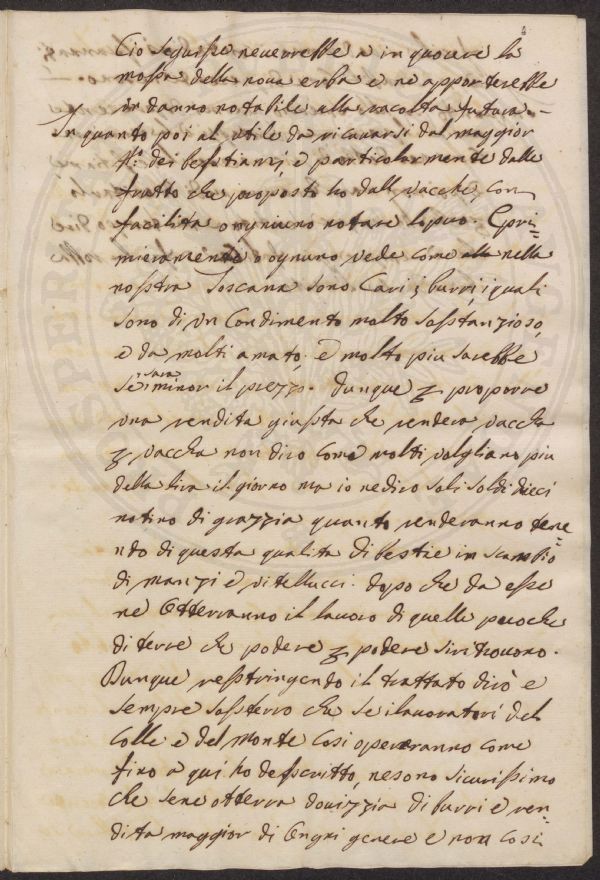 4
Cio seguisse neverrebbe a in quocere la
mossa della nova erba e ne apporterebbe
un danno notabile alla racolta futura. –
In quanto poi al utile da ricavarsi dal maggior
N.º dei besstiami, e particolarmente dalle
frutto che proposto ho dall vacche, con
facilita ogniuno notare lo puo. E pri=
mieramente ognuno vede come nella
nosstra Toscana sono Cari i burri, i quali
sono di un Condimento molto sosstanzioso,
e da molti amato, e molto piu sarebbe
se sara minor il prezzo. Dunque p proporre
una rendita giussta che rendera vaccha
p vaccha non dico come molti volgliano piu
della lira il giorno ma io ne dico soli soldi dieci
notino di grazzia quanto renderanno tene=
ndo di questa qualita di bestie in scambio
di manzi e vitellucci. dopo che da esse
ne Otterranno il lavoro di quelle poche
di terre che podere p podere si ritrovono.
Dunque resstringendo il trattato dirò e
sempre sosterro che se i lavoratori del
Colle e del Monte Cosi opereranno come
fino a qui ho desscritto, ne sono sicurissimo
che se ne otterra dovizzia di burri e ven=
dita maggior di Ongni genere e non Cosi